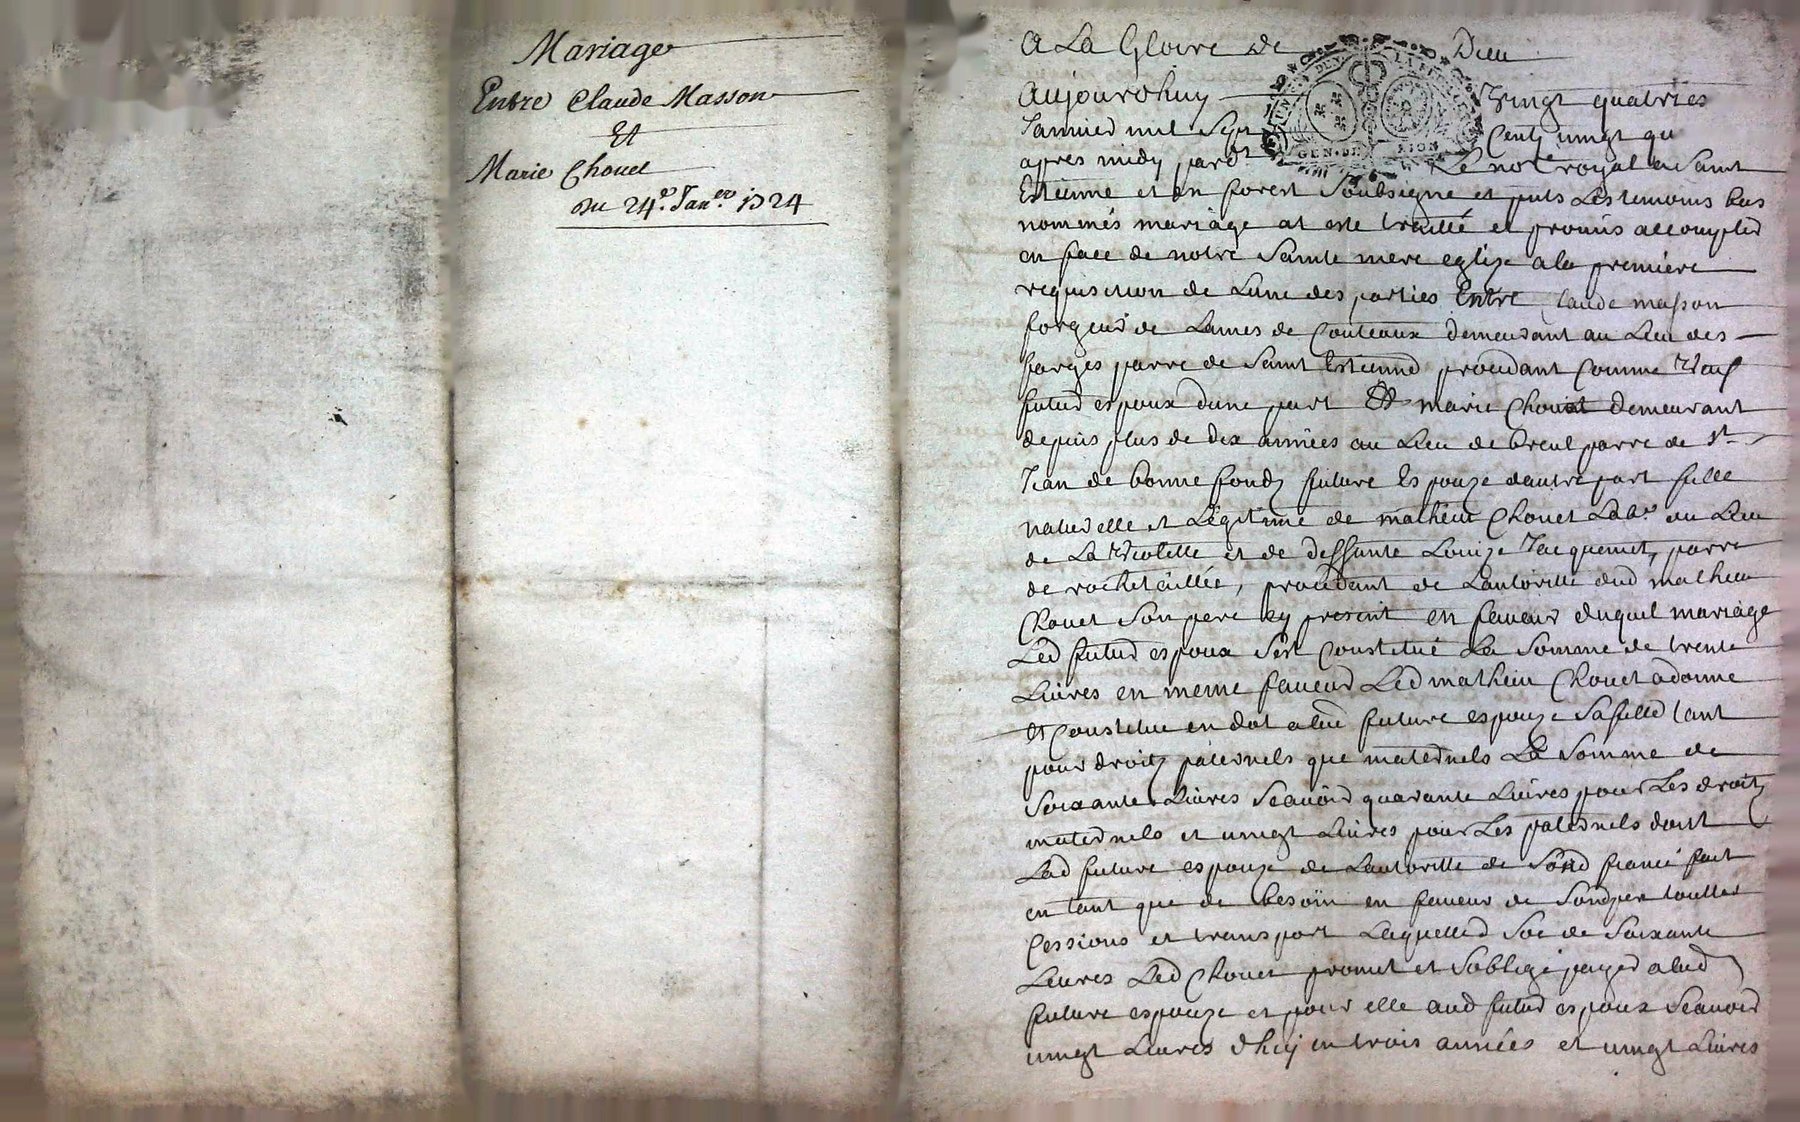 Mariage
Entre Claude Masson
Et
Marie Chouet
du 24e. Janer. 1724
A La Gloire de Dieu
Aujourdhuy Vingt quatries
Januier mil Sept Cent vingt qu
apres midy pardt Le notre royal a Saint
Estienne et en forest Soubsigne et puis Les temoins bas
nommés mariage at este traitté et promis accomplir
en face de notre Sainte mere eglize a la premiere
requisition de Lune des parties Entre Claude masson
forgeur de Lames de Couteaux demeurant au Lieu des
forges parre de Saint Estienne procedant Comme
futur espoux dune part Et marie Chouet demeurant
depuis plus de dix années au Lieu de breul parre de St
Jean de bonnefondz future Espouze dautre part fille
naturelle et Légitime de mathieu Chouet Labr. au Lieu
de La Violette et de deffunte Louize Jacquemet, parre
de rochetaillée, procedant de Lautoritté dud mathieu
Chouet Son pere icy present en faueur duquel mariage
Led futur espoux Sest Constitué La Somme de trente
Liures en meme faueur Led mathieu Chouet a donne
et Constitue en dot a lad future espouze Sa fille tant
pour droitz paternels que maternels La Somme de
Soixante Liures Scauoir quarante Liures pour Les droitz
maternels et vingt Liures pour Les paternels dont
Lad future espouze de Lautoritté de Sond fiancé fait
en tant que de besoin en faueur de Sondpere touttes
Cessions et transport Laquelle Soe de Soixante
Liures Led Chouet promet et Soblige payer a lad
future espouze et pour elle aud futur espoux Scauoir
vingt Liures dhuy en trois années et vingt Liures